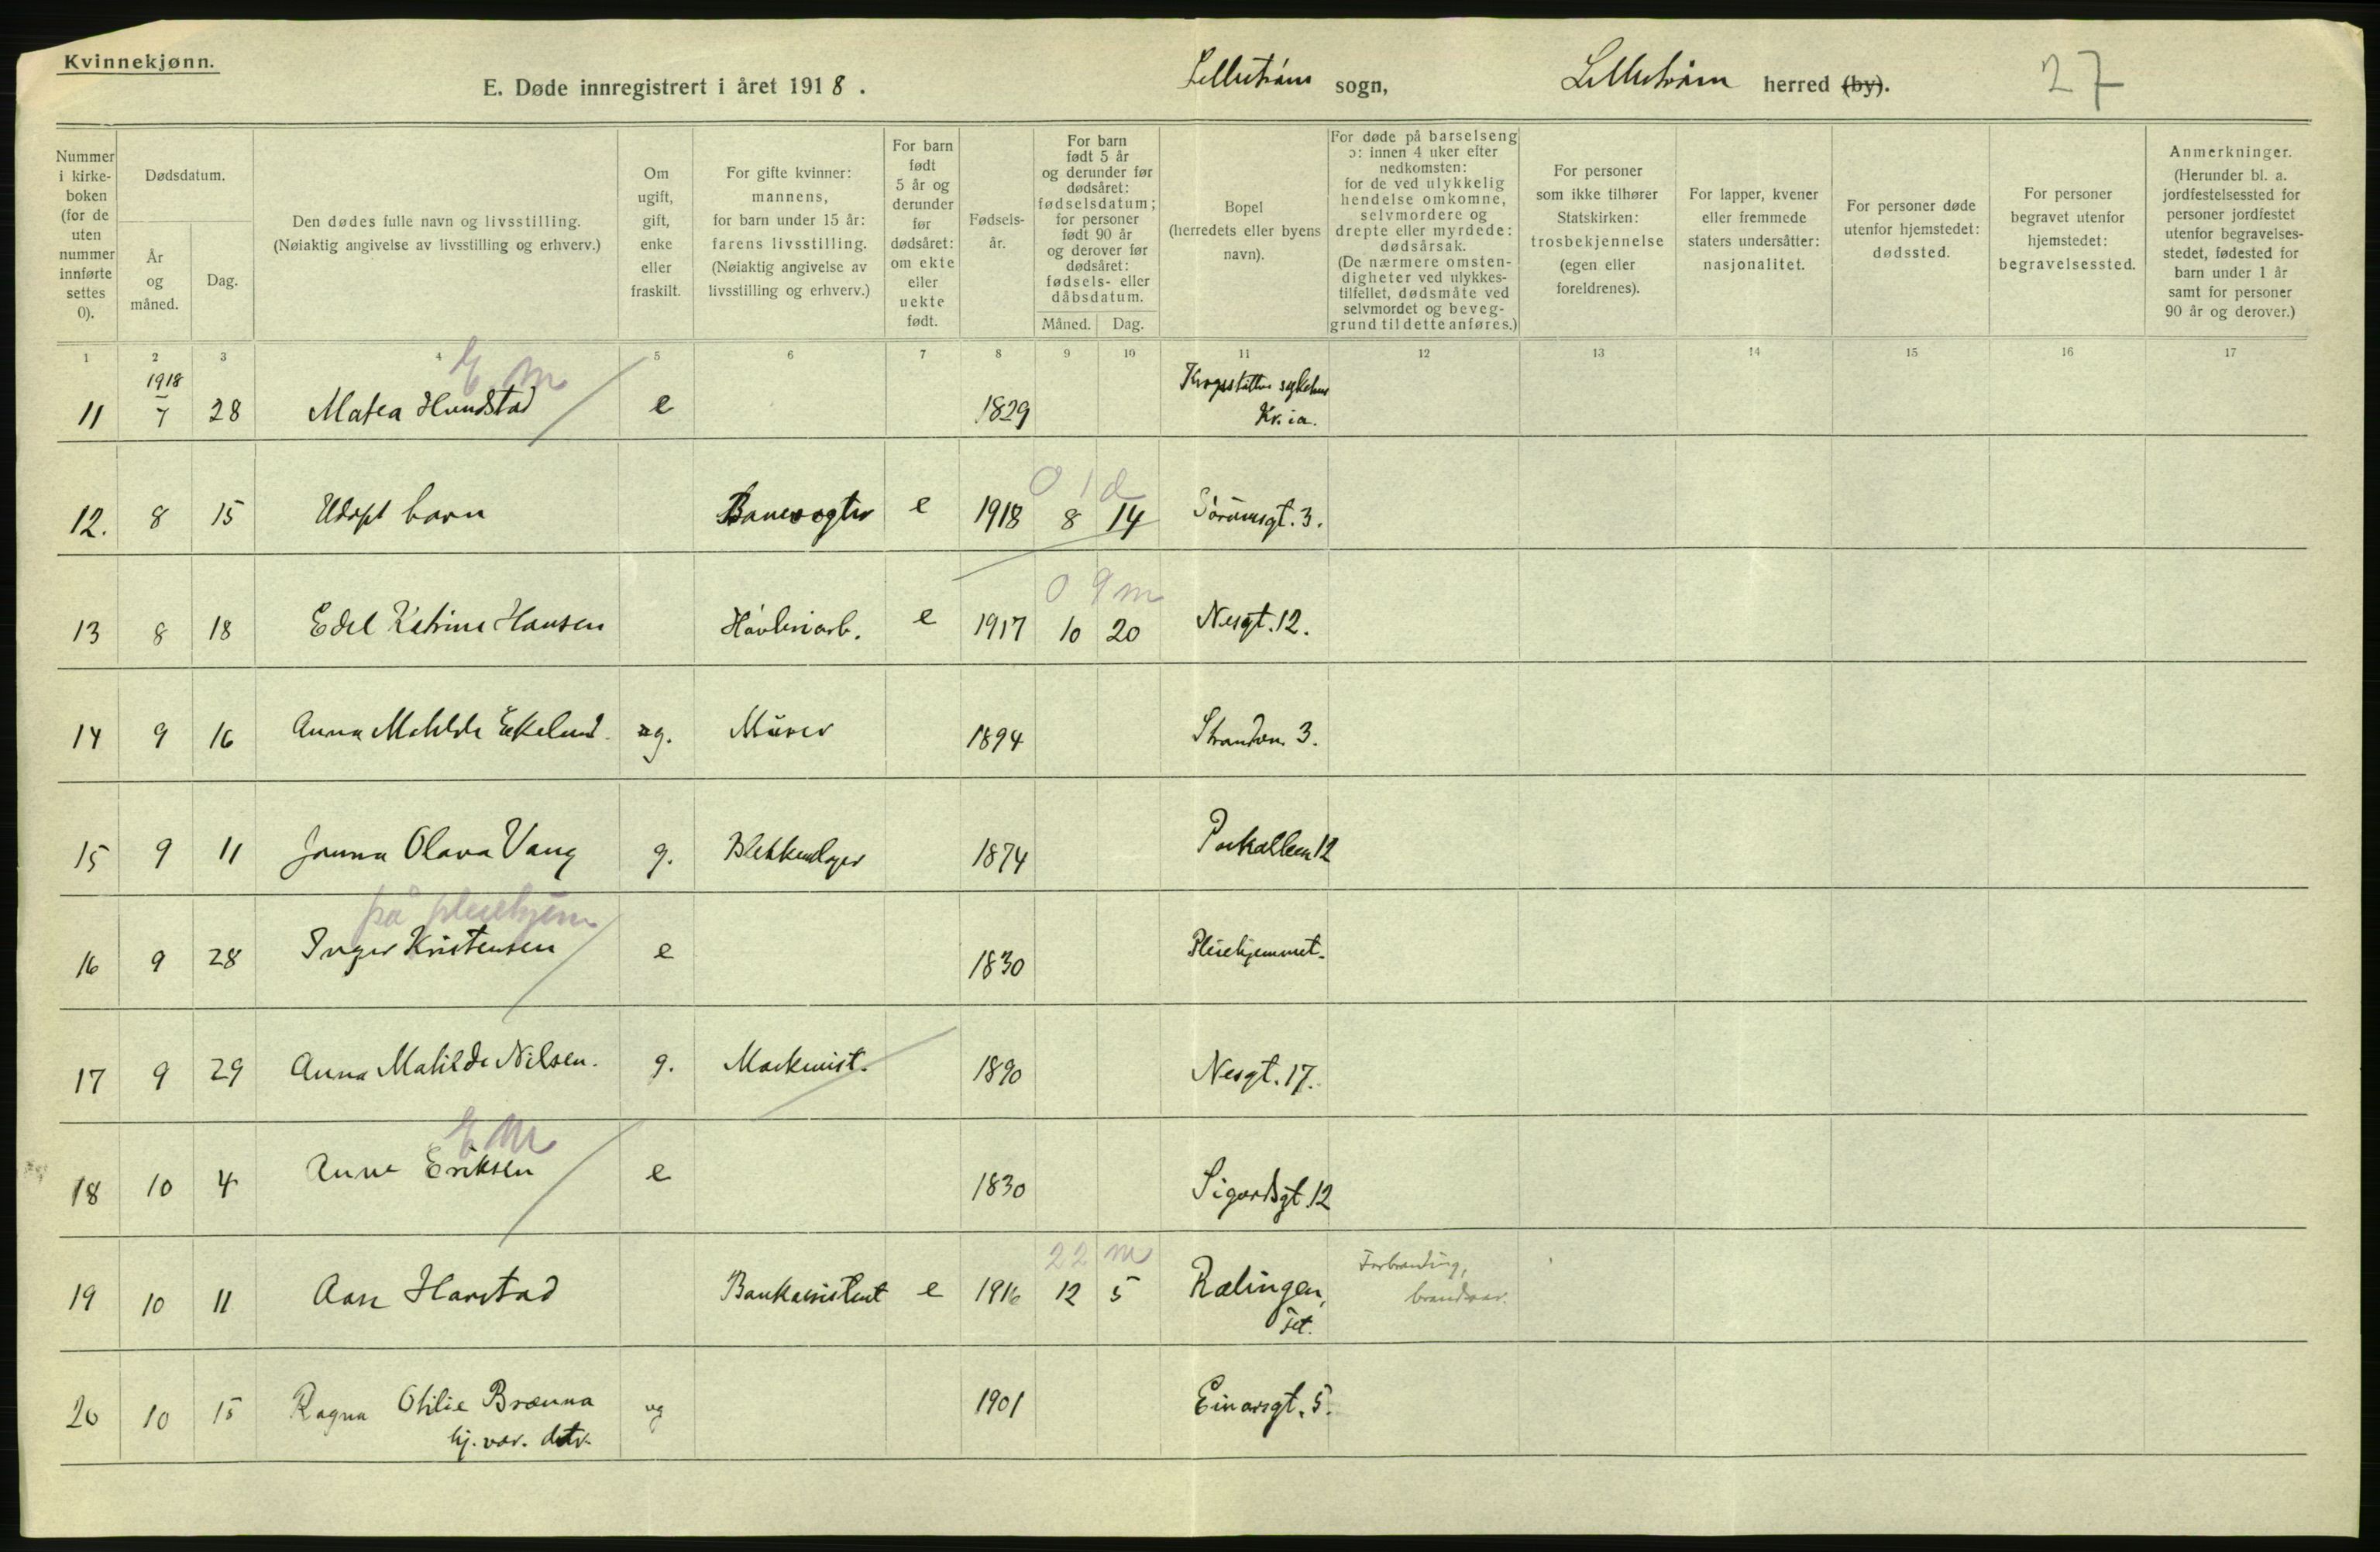 Kvinnekjønn.
E. Døde innregistrert i året 1918.
Lillestrøm sogn, Lillestrøm herred (by). 27
Nummer i kirke-boken (for de uten nummer innførte settes 0).
Dødsdatum.
År og måned.
Dag.
Den dødes fulle navn og livsstilling.
(Nøiaktig angivelse av livsstilling og erhverv.)
Om ugift, gift, enke eller fraskilt.
For gifte kvinner: mannens, for barn under 15 år: farens livsstilling. (Nøiaktig angivelse av livsstilling og erhverv.)
For barn født 5 år og derunder før dødsåret: om ekte eller uekte født.
Fødsels-år.
For barn født 5 år og derunder før dødsåret: fødselsdatum; for personer født 90 år og derover før dødsåret: fødsels- eller dåbsdatum.
Måned. Dag.
Bopel (herredets eller byens navn).
For døde på barselseng ɔ: innen 4 uker efter nedkomsten: for de ved ulykkelig hendelse omkomne, selvmordere og drepte eller myrdede: dødsårsak. (De nærmere omsten-digheter ved ulykkes-tilfellet, dødsmåte ved selvmordet og beveg-grund til dette anføres.)
For personer som ikke tilhører Statskirken: trosbekjennelse (egen eller foreldrenes).
For lapper, kvener eller fremmede staters undersåtter: nasjonalitet.
For personer døde utenfor hjemstedet: dødssted.
For personer begravet utenfor hjemstedet: begravelsessted.
Anmerkninger. (Herunder bl. a. jordfestelsessted for personer jordfestet utenfor begravelses-stedet, fødested for barn under 1 år samt for personer 90 år og derover.)
1 2 3 4 5 6 7 8 9 10 11 12 13 14 15 16 17
E. m
1918
11 7 28 Matea Hundstad e 1829 Krogsstøtten sykehus
Kr.ia.
0 1 d
12. 8 15 Udøpt barn Banevogter e 1918 8 14 Sørumsgt. 3.
0 9 m
13 8 18 Edel Katrine Hansen Høvleriarb. e 1917 10 20 Nesgt. 12.
14 9 16 Anna Mathilde Ekelund. g. Murer 1894 Strandvn. 3.
15 9 11 Janna Olava Vang g. Blikkenslager 1874 Parkalleen 12
på pleiehjem
16 9 28 Inger Kristensen e 1830 Pleiehjemmet.
17 9 29 Anna Matilde Nilsen. g. Maskinist. 1890 Nesgt. 17.
E M
18 10 4 Anne Eriksen e 1830 Sigurdsgt. 12
22 m
19 10 11 Aase Harstad Bankassistent e 1916 12 5 Rælingen, Forbrænding,
brandsaar.
20 10 15 Ragna Otilie Brænna ug 1901 Einarsgt. 5.
hj. vær. datr.